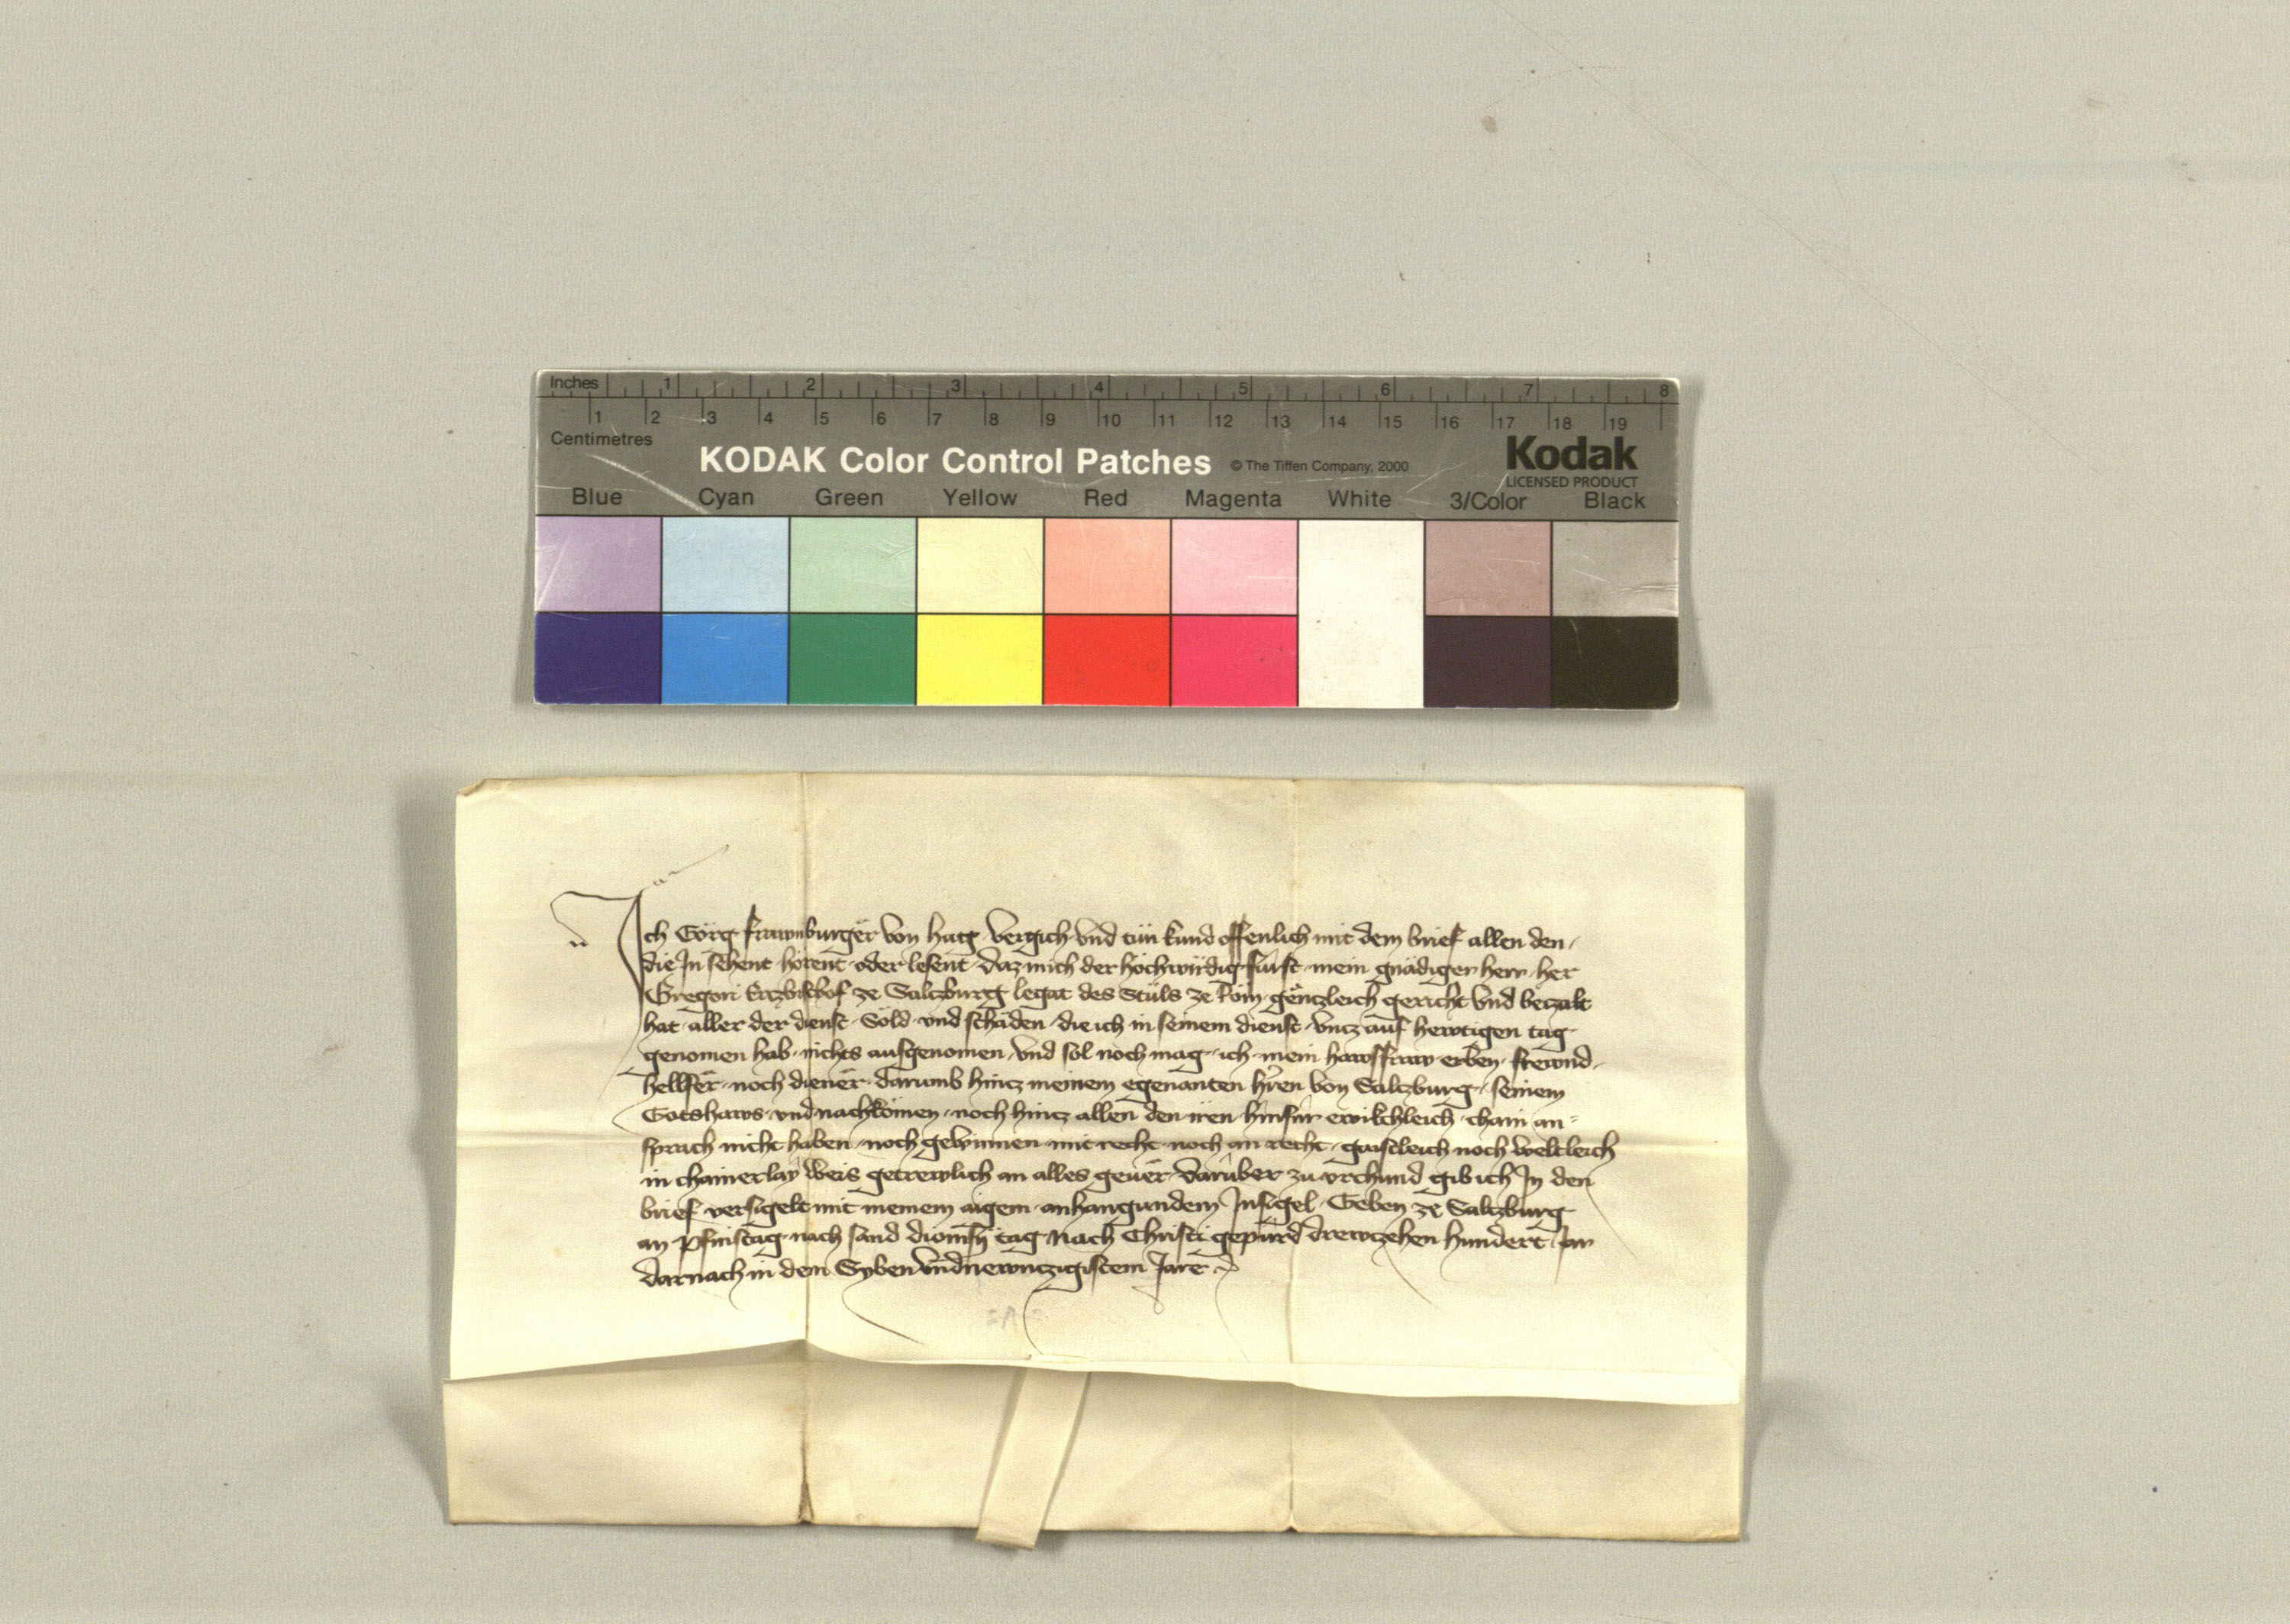 Inches 1 2 3 4 5 6 7 8
1 2 3 4 5 6 7 8 9 10 11 12 13 14 15 16 17 18 19
Centimetres
KODAK Color Control Patches © The Tiffen Company, 2000 Kodak
LICENSED PRODUCT
Blue Cyan Green Yellow Red Magenta White 3/Color Black
Ich Görg frawnburger von hag vergich vnd tün kund offenlich mit dem brief allen den
die In sehent hörent oder lesent daz mich der hochwirdig fürst mein gnädiger herr her
Gregori Ertzbischof ze Saltzburg legat des Stüls ze Rom gentzleich gericht vnd betzalt
hat aller der dienst Söld vnd schäden die ich in seinem dienst vntz auf hewtigen tag
genomen hab nichts ausgenomen vnd sol noch mag ich mein hawsfraw erben frewnd
hellfer noch diener darumb hintz meinem egenanten hren von Saltzburg seinem
Gotshaws vnd nachkömen noch hintz allen den iren hinfür ewikchleich chain an-
sprach nicht haben noch gewinnen mit recht noch an recht gaistleich noch weltleich
in chainerlay weis getrewlich an alles geuer darüber zu vrchund gib ich In den
brief versigelt mit meinem aigem anhangundem Insigel Geben ze Saltzburg
an Pfinstag nach sand dionisÿ tag nach Christi gepürd drewtzehen hundert Jar
darnach in dem Syben vnd newntzigistem Jare